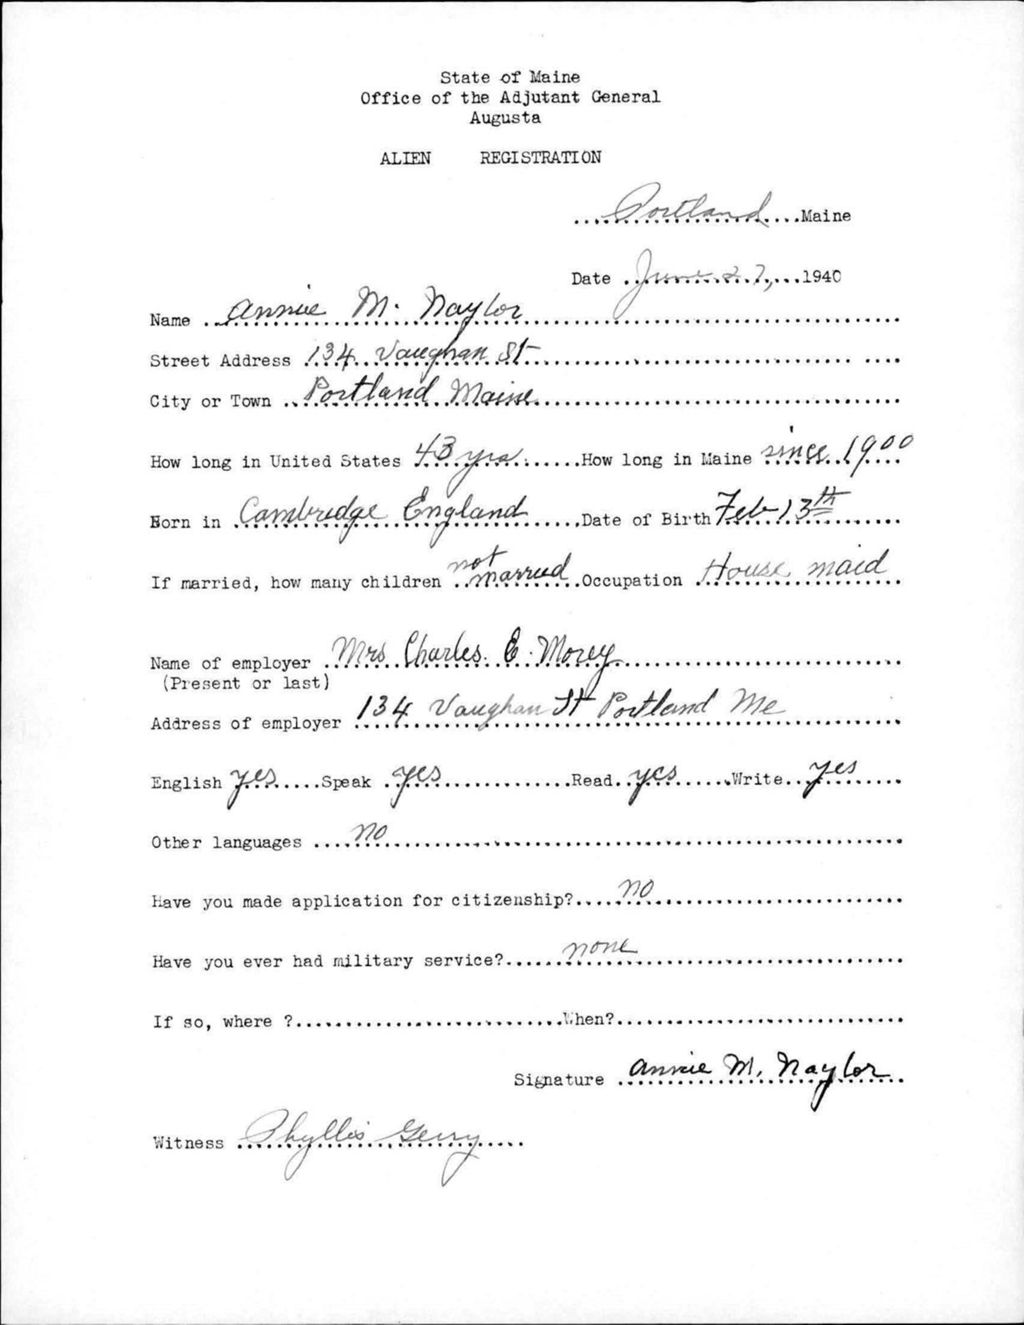 State of Maine
Office of the Adjutant General
Augusta
ALIEN REGISTRATION
Portland Maine
Date June 27, 1940
Name Annie M. Naylor
Street Address 134 Vaughan St
City or Town Portland Maine
How long in United States 43 yrs. How long in Maine since 1900
Born in Cambridge England Date of Birth Feb 13th
If married, how many children not married Occupation House maid
Name of employer Mrs Charles. E. Morey
(Present or last)
Address of employer 134 Vaughan St Portland Me
English yes Speak yes Read yes Write yes
Other languages no
Have you made application for citizenship? no
Have you ever had military service? none
If so, where ? When?
Signature Annie M. Naylor
Witness Phyllis Gerry